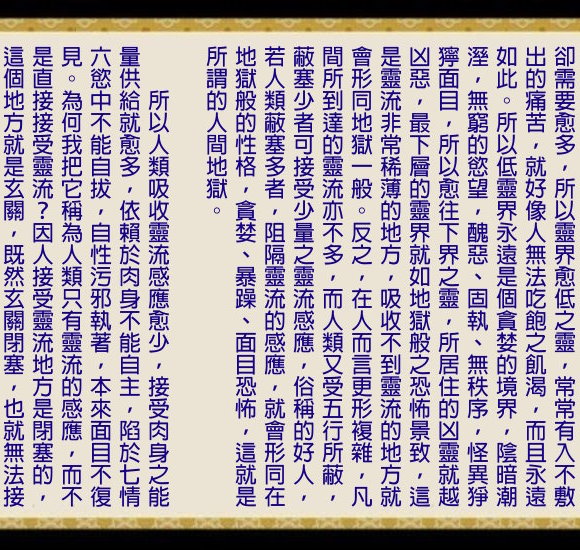 卻需要愈多，所以靈界愈低之靈，常常有入不敷
出的痛苦，就好像人無法吃飽之飢渴，而且永遠
如此。所以低靈界永遠是個貪婪的境界，陰暗潮
溼，無窮的慾望，醜惡、固執、無秩序，怪異猙
獰面目，所以愈往下界之靈，所居住的凶靈就越
凶惡，最下層的靈界就如地獄般之恐怖景致，這
是靈流非常稀薄的地方，吸收不到靈流的地方就
會形同地獄一般。反之，在人而言更形複雜，凡
間所到達的靈流亦不多，而人類又受五行所蔽，
蔽塞少者可接受少量之靈流感應，俗稱的好人，
若人類蔽塞多者，阻隔靈流的感應，就會形同在
地獄般的性格，貪婪、暴躁、面目恐怖，這就是
所謂的人間地獄。
所以人類吸收靈流感應愈少，接受肉身之能
量供給就愈多，依賴於肉身不能自主，陷於七情
六慾中不能自拔，自性污邪執著，本來面目不復
見。為何我把它稱為人類只有靈流的感應，而不
是直接接受靈流？因人接受靈流地方是閉塞的，
這個地方就是玄關，既然玄關閉塞，也就無法接